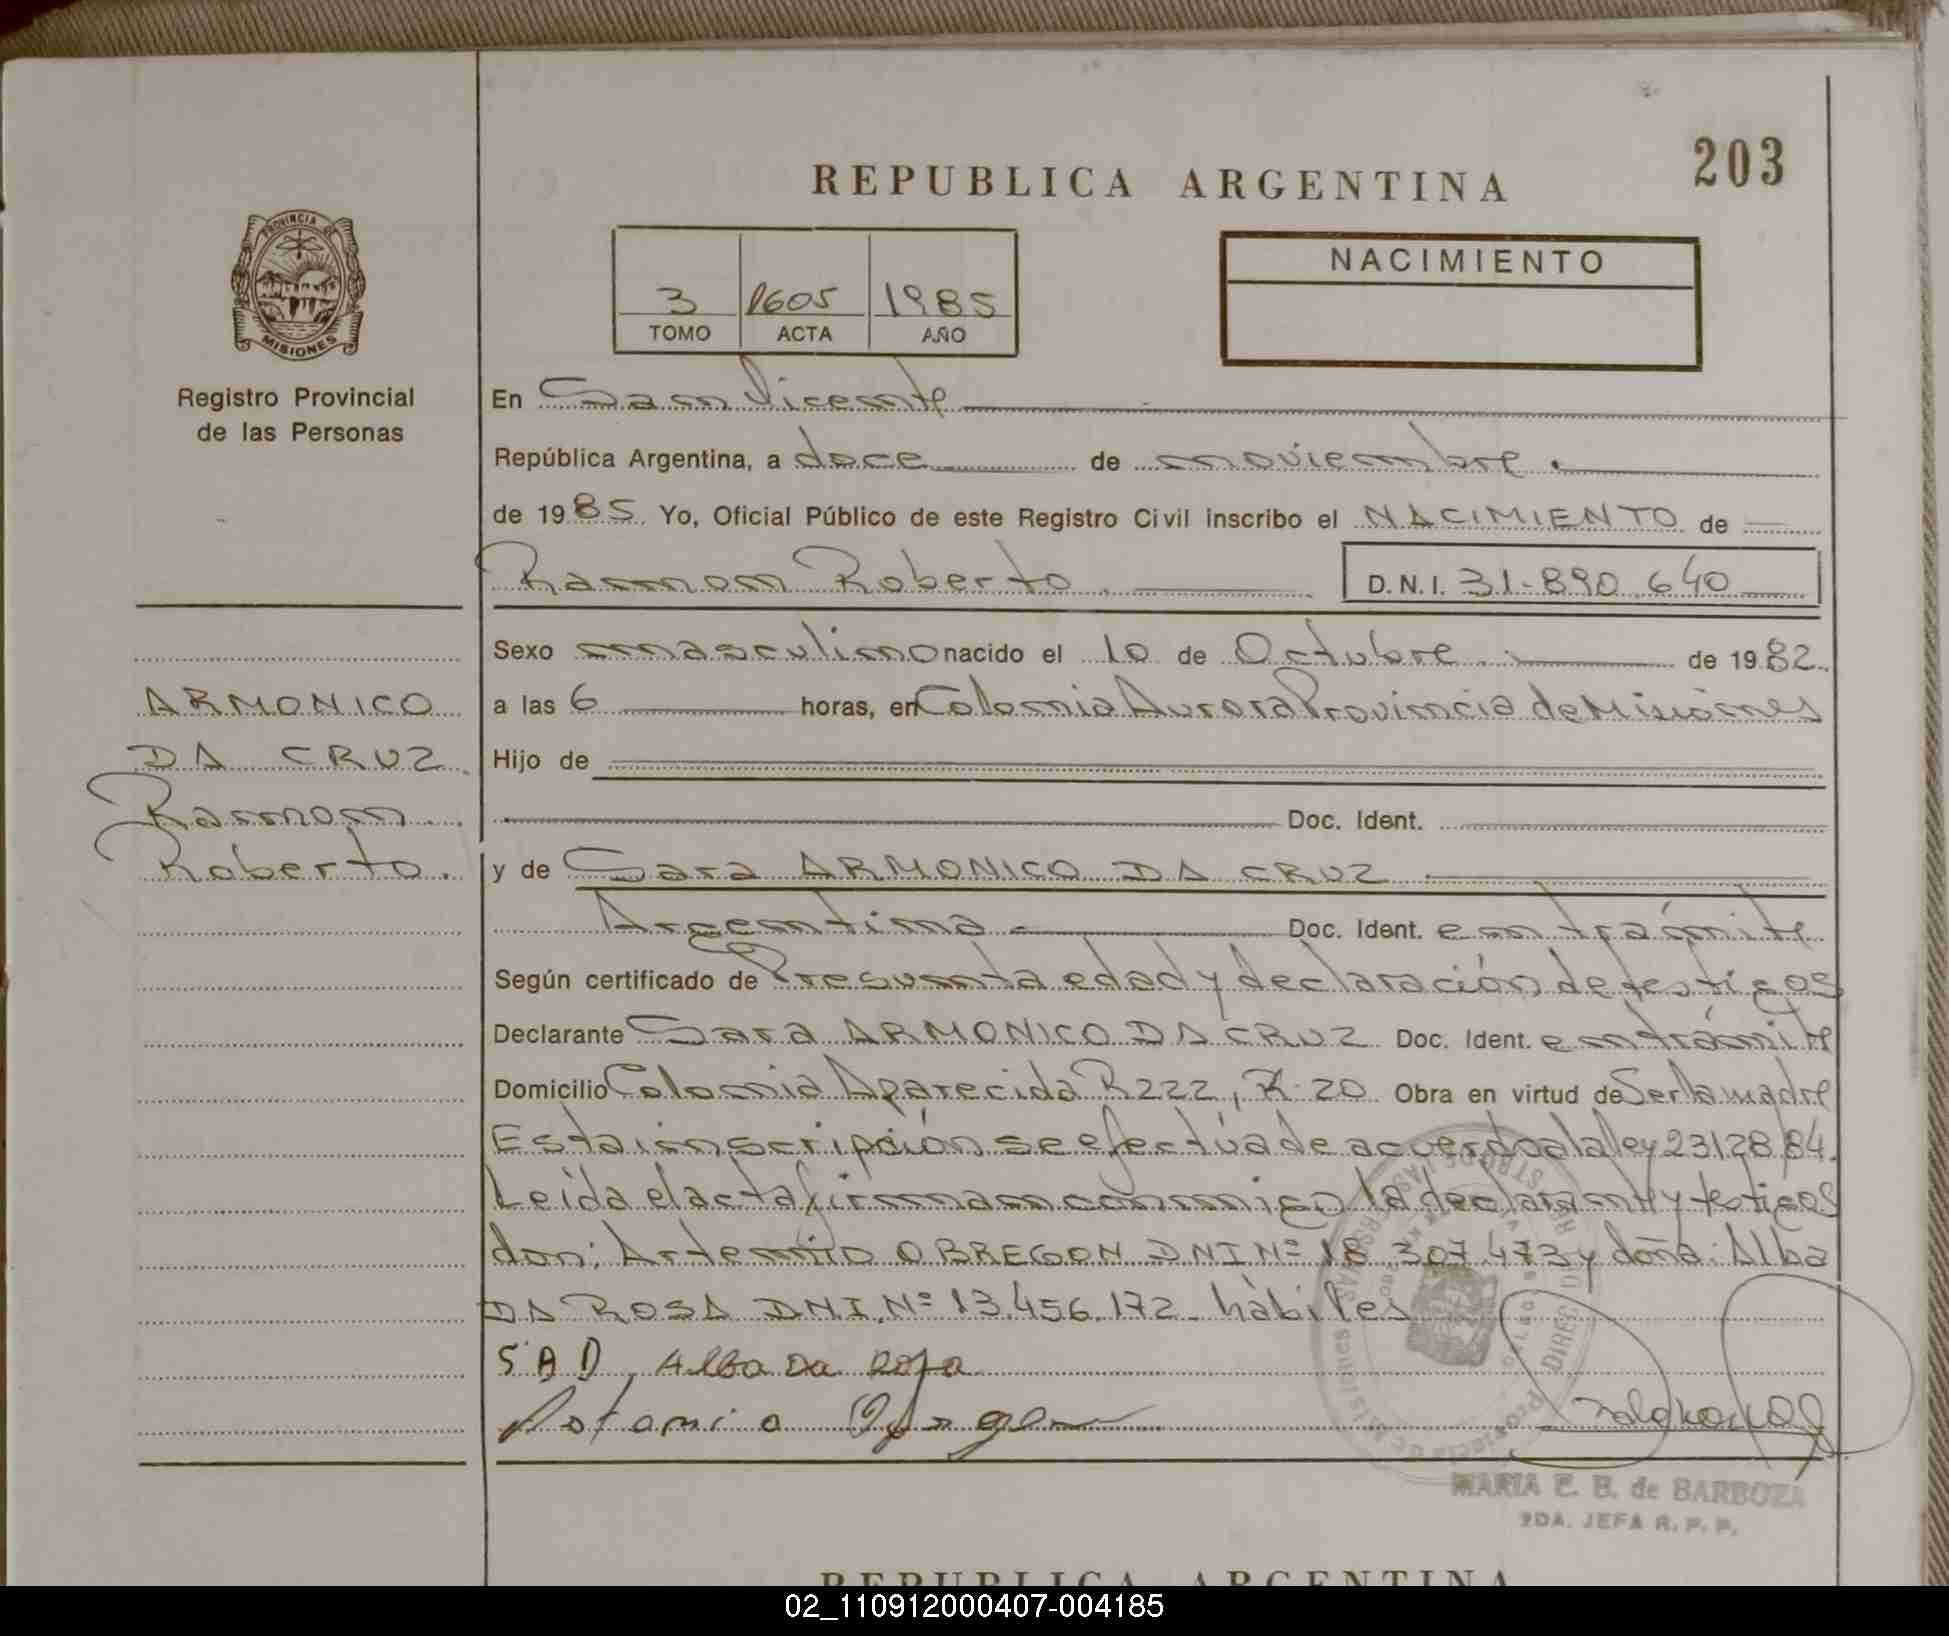 203
REPUBLICA ARGENTINA
PROVINCIA DE
MISIONES
Registro Provincial
de las Personas
3 1605 1985
TOMO ACTA AÑO
NACIMIENTO
En San Vicente
República Argentina, a doce de noviembre.
de 1985. Yo, Oficial Público de este Registro Civil inscribo el NACIMIENTO de
Ramon Roberto. D.N.I. 31-890.640
Sexo masculino nacido el 10 de Octubre. de 1982.
a las 6 horas, en Colonia Aurora Provincia de Misiones
Hijo de
Doc. Ident.
y de Sara ARMONICO DA CRUZ
Argentina Doc. Ident. en trámite
Según certificado de Presunta edad y declaración de testigos
Declarante Sara ARMONICO DA CRUZ Doc. Ident. en trámite
Domicilio Colonia Aparecida R222, K 20 Obra en virtud de Ser la madre
Esta inscripción se efectúa de acuerdo a la ley 23128/84.
Leída el acta firman conmigo la declarante y testigos
don: Artemio OBREGON DNI Nº 18.307.473 y doña: Alba
DA ROSA DNI. Nº 13.456.172 - hàbiles
S A D Alba Da Rosa
ARMONICO
DA CRUZ.
Ramon
Roberto.
MARIA E. B. de BARBOZA
2DA. JEFA R. P. P.
REPUBLICA ARGENTINA
02_110912000407-004185